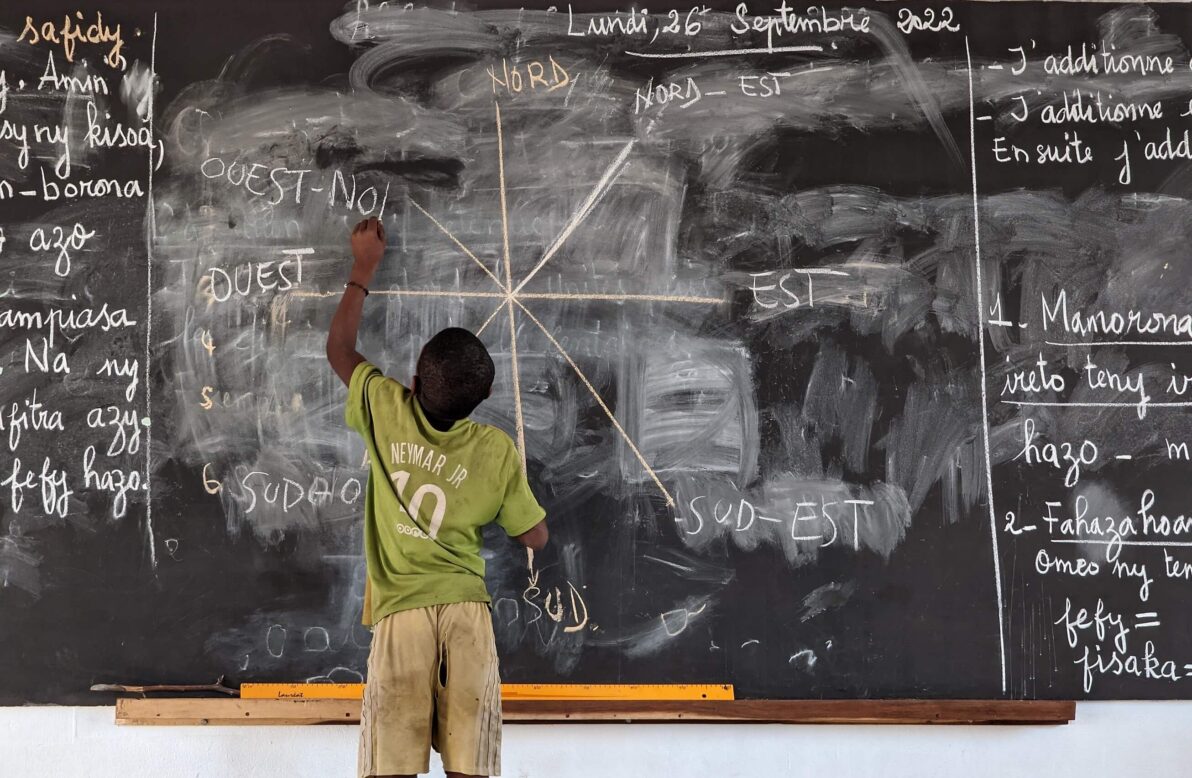 safidy.
y. Amin
sy ny kisoa,
n-borona
azo
ampiasa
. Na ny
fitra azy.
fefy hazo.
Lundi, 26 Septembre 2022
NORD
NORD-EST
OUEST-NO
OUEST
EST
4
5
6 SUD-O
SUD-EST
SUD.
NEYMAR JR
10
Lauréat
- J'additionne
- J'additionne
Ensuite j'add
1- Mamorona
ireto teny
hazo - m
2- Fahazahoa
omeo ny ten
fefy =
fisaka =